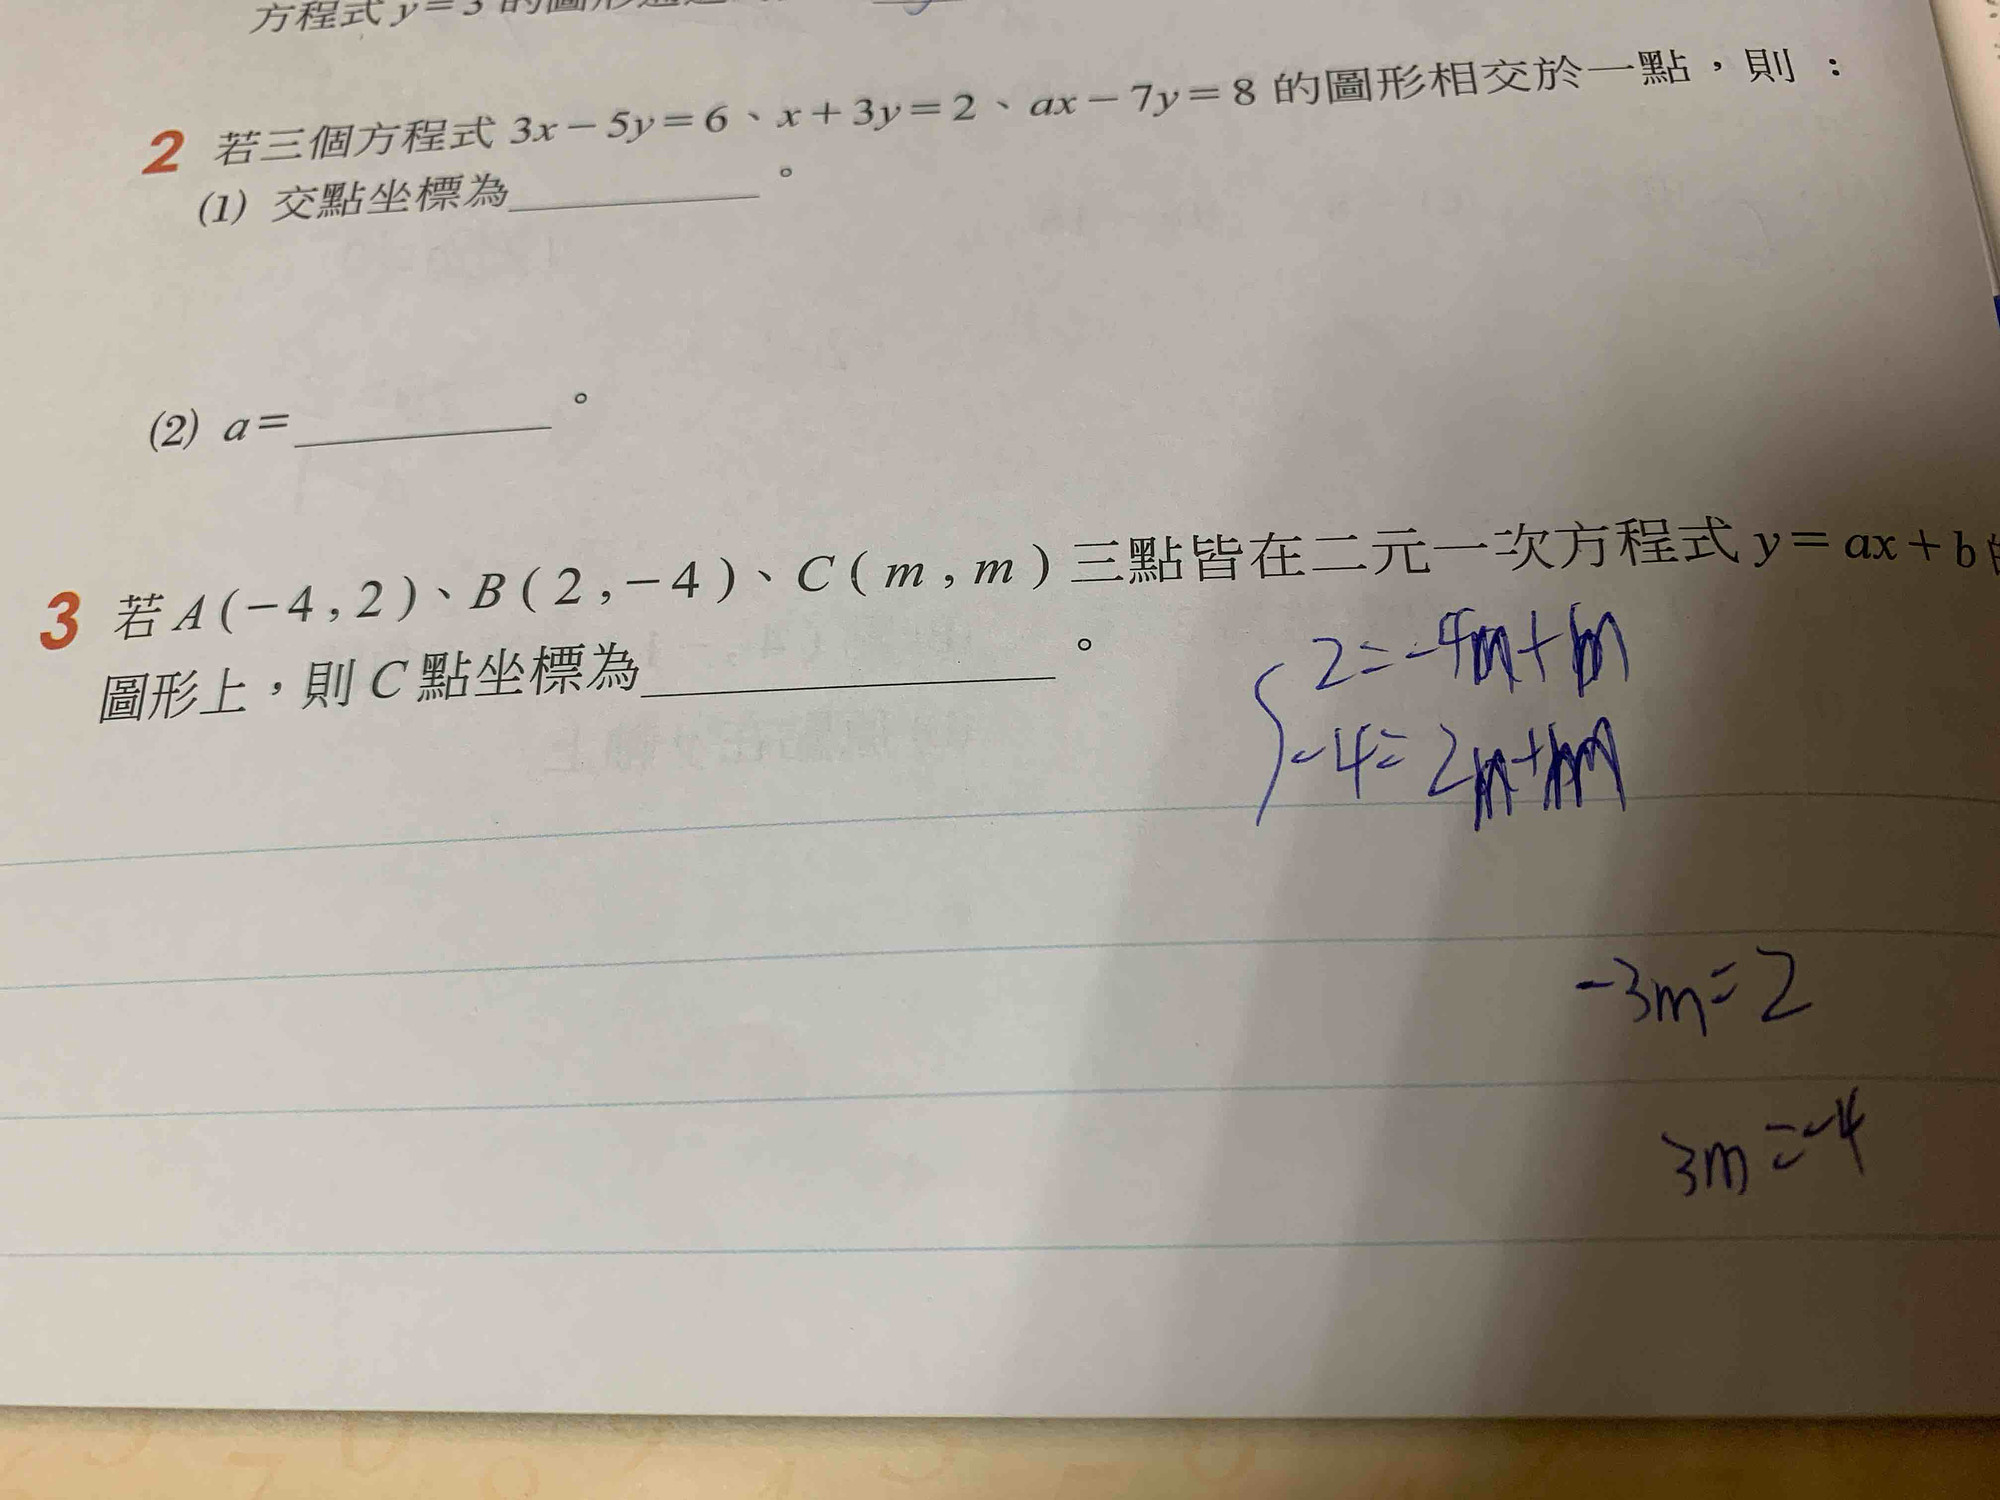 方程式 y=3 的圖形通過
2 若三個方程式 3x-5y=6、x+3y=2、ax-7y=8 的圖形相交於一點，則：
(1) 交點坐標為__________。
(2) a=__________。
3 若 A(-4,2)、B(2,-4)、C(m,m) 三點皆在二元一次方程式 y=ax+b
圖形上，則 C 點坐標為__________。
2=-4m+m
-4=2m+m
-3m=2
3m=-4